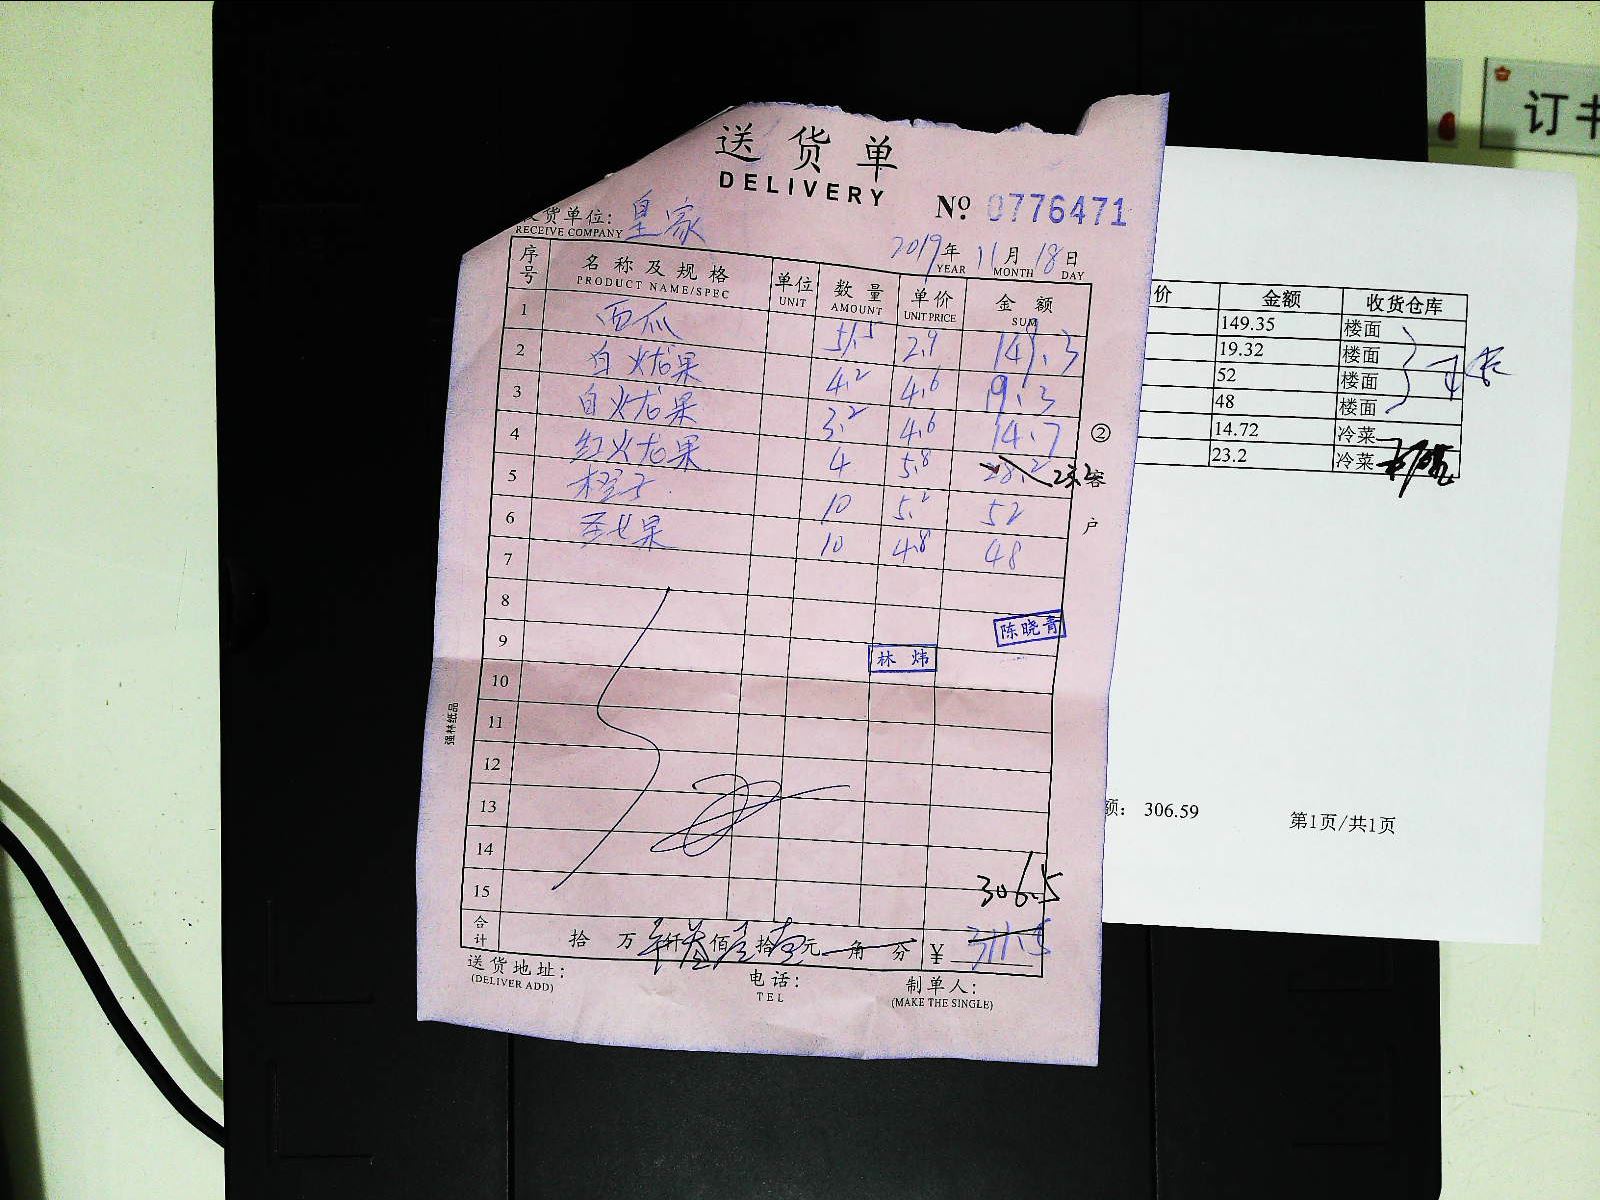 订书
送货单
DELIVERY
No. 0776471
收货单位: 皇家
RECEIVE COMPANY
2019年 11月 18日
YEAR MONTH DAY
序号 名称及规格 单位 数量 单价 金额
PRODUCT NAME/SPEC UNIT AMOUNT UNIT PRICE SUM
1 西瓜 51.5 2.9 149.3
2 白火龙果 4.2 4.6 19.3
3 白火龙果 3.2 4.6 14.7
4 红火龙果 4 5.8 28.2 23.2
5 橙子 10 5.2 52
6 圣女果 10 4.8 48
7
8
9
10
11
12
13
14
15
陈晓青
林炜
306.5
合计 拾 万 仟叁佰壹拾壹元 角 分 ¥ 311.5
送货地址: 电话: 制单人:
(DELIVER ADD) TEL (MAKE THE SINGLE)
②客户
强林纸品
价 金额 收货仓库
149.35 楼面
19.32 楼面
52 楼面
48 楼面
14.72 冷菜
23.2 冷菜
额: 306.59 第1页/共1页